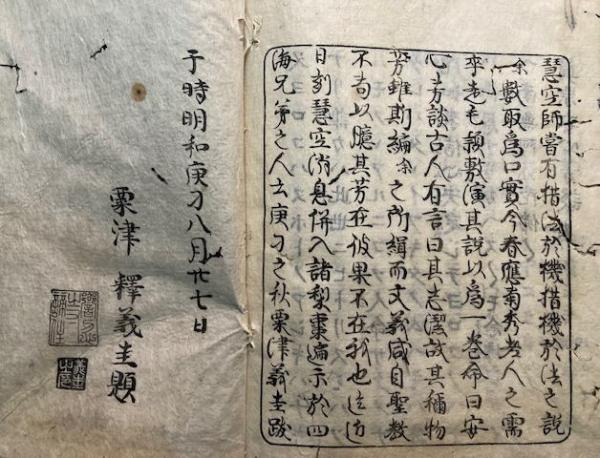 慧空師嘗有措法於機措機於法之説
余數取爲口實今春應菊秀老人之需
卒走毛穎敷演其説以爲一巻命曰安
心芳談古人有言曰其志潔故其稱物
芳雖斯編余之所緝而文義咸自聖教
不啻以臆其芳在彼果不在我也
日刻慧空消息併入諸梨棗徧示於四
海兄弟之人云庚刁之秋粟津義圭跋
于時明和庚刁八月廿七日
粟津 釋義圭題